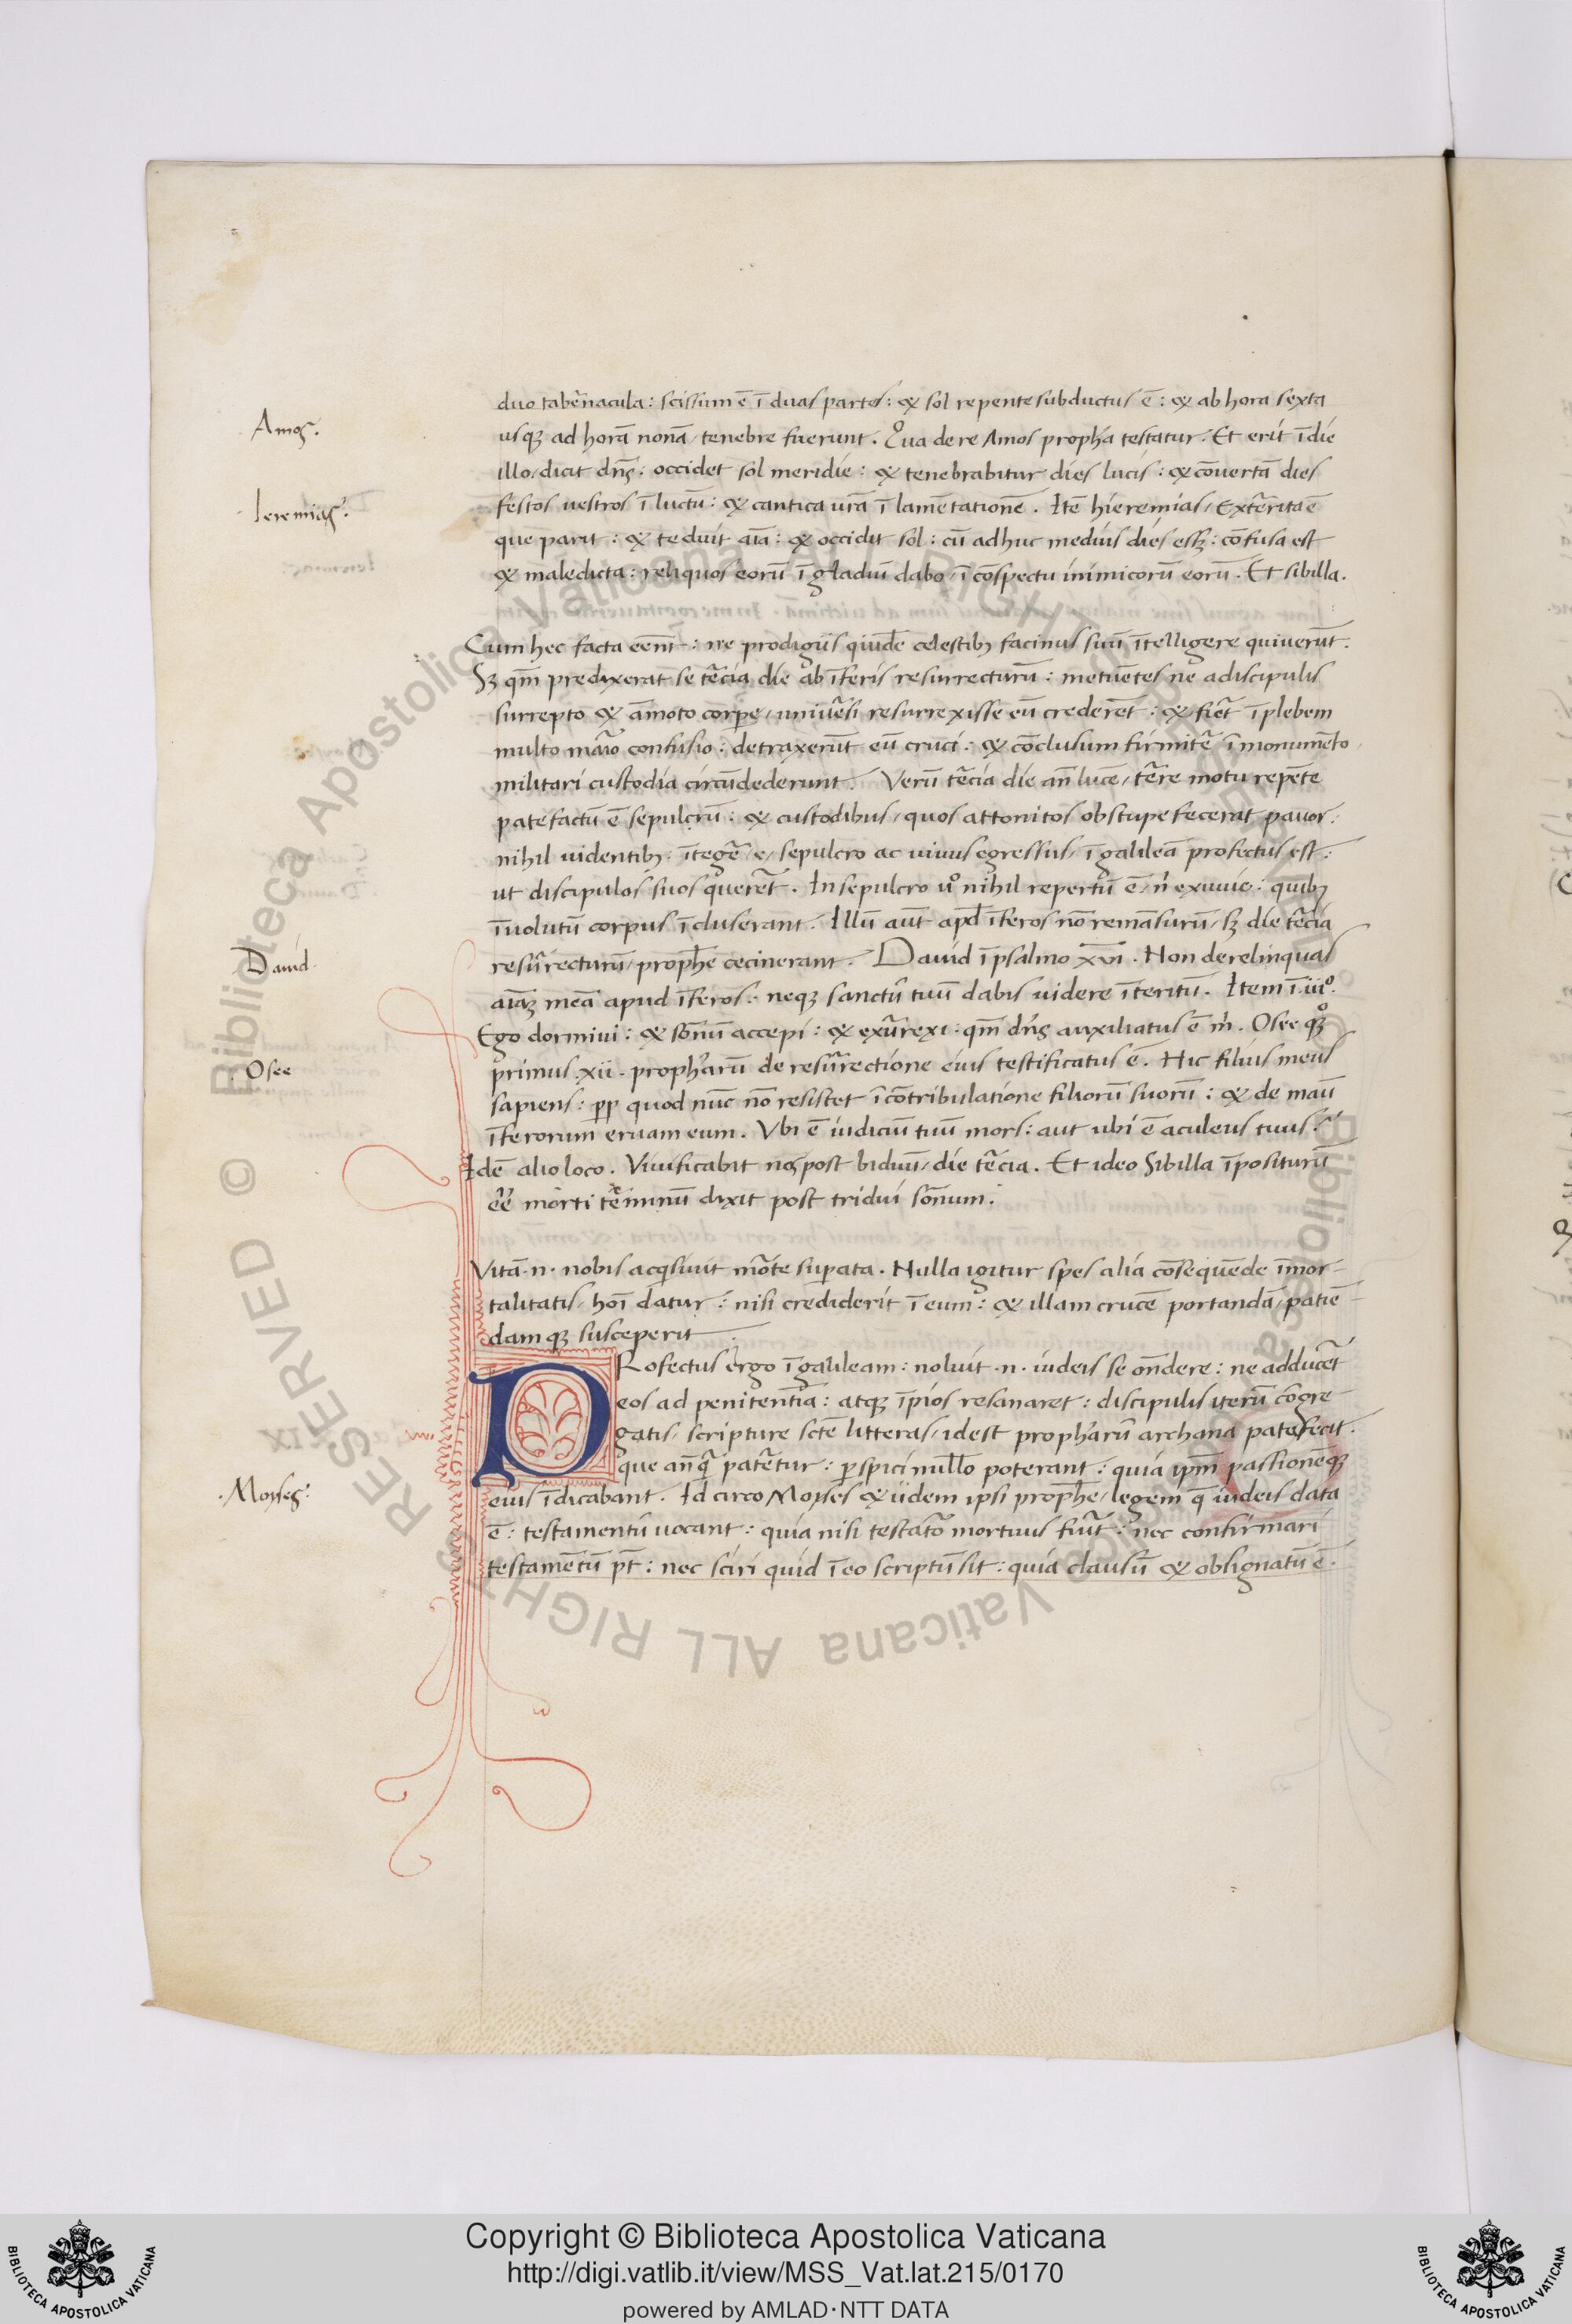 duo tabn̄acula: scissum ē ī duas partes: & sol repente subductus ē: & ab hora sexta
Amos.
usqꝫ ad horā nonā, tenebre fuerunt. Qua de re Amos propħa testatur. Et erit ī die
illo, dicit dn̄s: occidet sol meridie: & tenebrabitur dies lucis: & cōuertā dies
Ieremias.
festos uestros ī luctū: & cantica ur̄a ī lamētationē. Itē hieremias, Extērita ē
que parit: & teduit aīa: & occidit sol: cū adhuc medius dies essꝫ: cōfusa est
& maledicta: reliquos eorū ī gladiū dabo, ī cōspectu inimicorū eorū. Et sibilla.
Cum hec facta eēnt: ne prodigiis quidē celestibꝫ facinus suū ītelligere quiuerūt.
Sꝫ qm̄ predixerat se tēcia die ab īferis resurrecturū: metuētes ne a discipulis
surrepto & āmoto corpe, uniuēsi resurrexisse eū crederēt: & fiēt ī plebem
multo maīo confusio: detraxerūt eū cruci: & cōclusum firmitē ī monumēto,
militari custodia circūdederunt. Verū tēcia die an̄ lucē, tēre motu repēte
patefactū ē sepulcrū: & custodibus, quos attonitos obstupefecerat pauor:
nihil uidentibꝫ: ītegē, e, sepulcro ac uiuus egressus, ī galileā profectus est:
ut discipulos suos querēt. In sepulcro uo nihil repertū ē, n̄ exuuie: quibꝫ
īuolutū corpus īcluserant. Illū aūt apd̄ īferos nō remāsurū, sꝫ die tēcia
David.
resūrecturū, prophē cecinerant. David ī psalmo xvi. Non derelinquas
aīaꝫ meā apud īferos: neqꝫ sanctū tuū dabis uidere īteritū. Item ī iiio.
Ego dormiui: & sōnū accepi: & exūrexi: qm̄ dn̄s auxiliatus ē m̄. Osee qꝫ
Osee
primus xii. prophārū de resūrectione eius testificatus ē. Hic filius meus
sapiens: pp quod nūc nō resistet ī cōtribulatione filiorū suorū: & de maū
īferorum eruam eum. Vbi ē iudiciū tuū mors: aut ubi ē aculeus tuus?
Idē alio loco. Viuificabit nos post biduū, die tēcia. Et ideo Sibilla īpositurū
eē morti tēminū dixit post tridui sōnum.
Vitā .n. nobis acqsiuit mōte supata. Nulla igitur spes alia cōsequēde īmor-
talitatis, hoī datur: nisi crediderit ī eum: & illam crucē portandā, patiē-
damqꝫ susceperit.
PRofectus ergo ī galileam: noluit .n. iudeis se on̄dere: ne adducēt
eos ad penitentiā: atqꝫ īpios resanaret: discipulis iterū cōgre-
gatis, scripture sctē litteras, idest prophārū archana patefecit.
que an̄q̄ patētur: pspici nullo poterant: quia ipm̄ passionēqꝫ
Moyses:
eius īdicabant. Idcirco Moyses & iidem ipsi prophē, legem q̄ iudeis data
ē: testamentū uocant: quia nisi testatō mortuus fuīt: nec confirmari
testamētū pt̄: nec sciri quid ī eo scriptū sit: quia clausū & obsignatū ē.
Copyright © Biblioteca Apostolica Vaticana
http://digi.vatlib.it/view/MSS_Vat.lat.215/0170
powered by AMLAD·NTT DATA
BIBLIOTECA APOSTOLICA VATICANA
BIBLIOTECA APOSTOLICA VATICANA